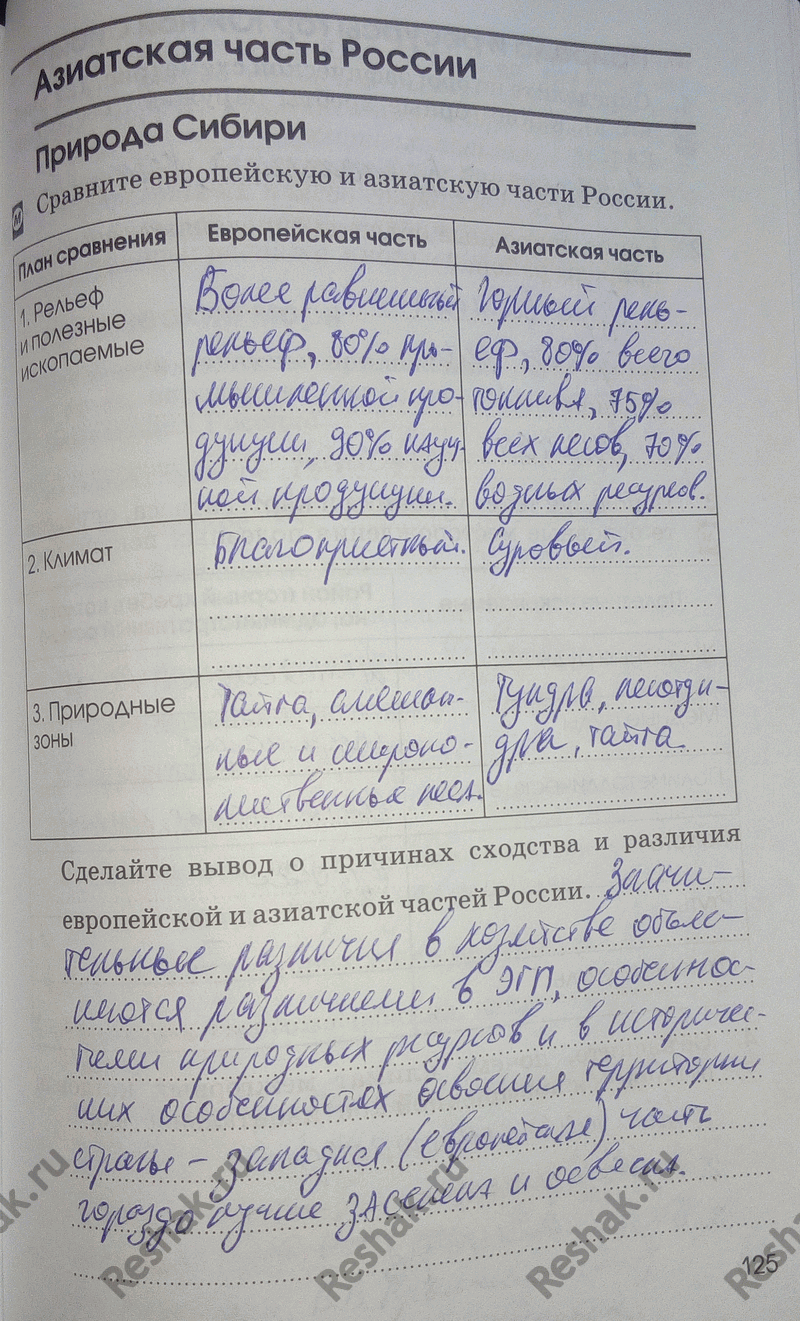 Азиатская часть России
Природа Сибири
М
Сравните европейскую и азиатскую части России.
План сравнения
Европейская часть
Азиатская часть
1. Рельеф
и полезные
ископаемые
Более равнинный
рельеф, 80% про-
мышленной про-
дукции, 90% науч-
ной продукции.
Горный рель-
еф, 80% всего
топлива, 75%
всех лесов, 70%
водных ресурсов.
2. Климат
Благоприятный.
Суровый.
3. Природные
зоны
Тайга, смешан-
ные и широко-
лиственные леса.
Тундра, лесотун-
дра, тайга
Сделайте вывод о причинах сходства и различия
европейской и азиатской частей России. Значи-
тельные различия в хозяйстве объяс-
няются различиями в ЭГП, особеннос-
тями природных ресурсов и в историчес-
ких особенностях освоения территории
страны – западная (европейская) часть
гораздо лучше заселена и освоена.
125
ak.ru
Reshak.ru
Reshak.ru
Reshak.ru
Reshak